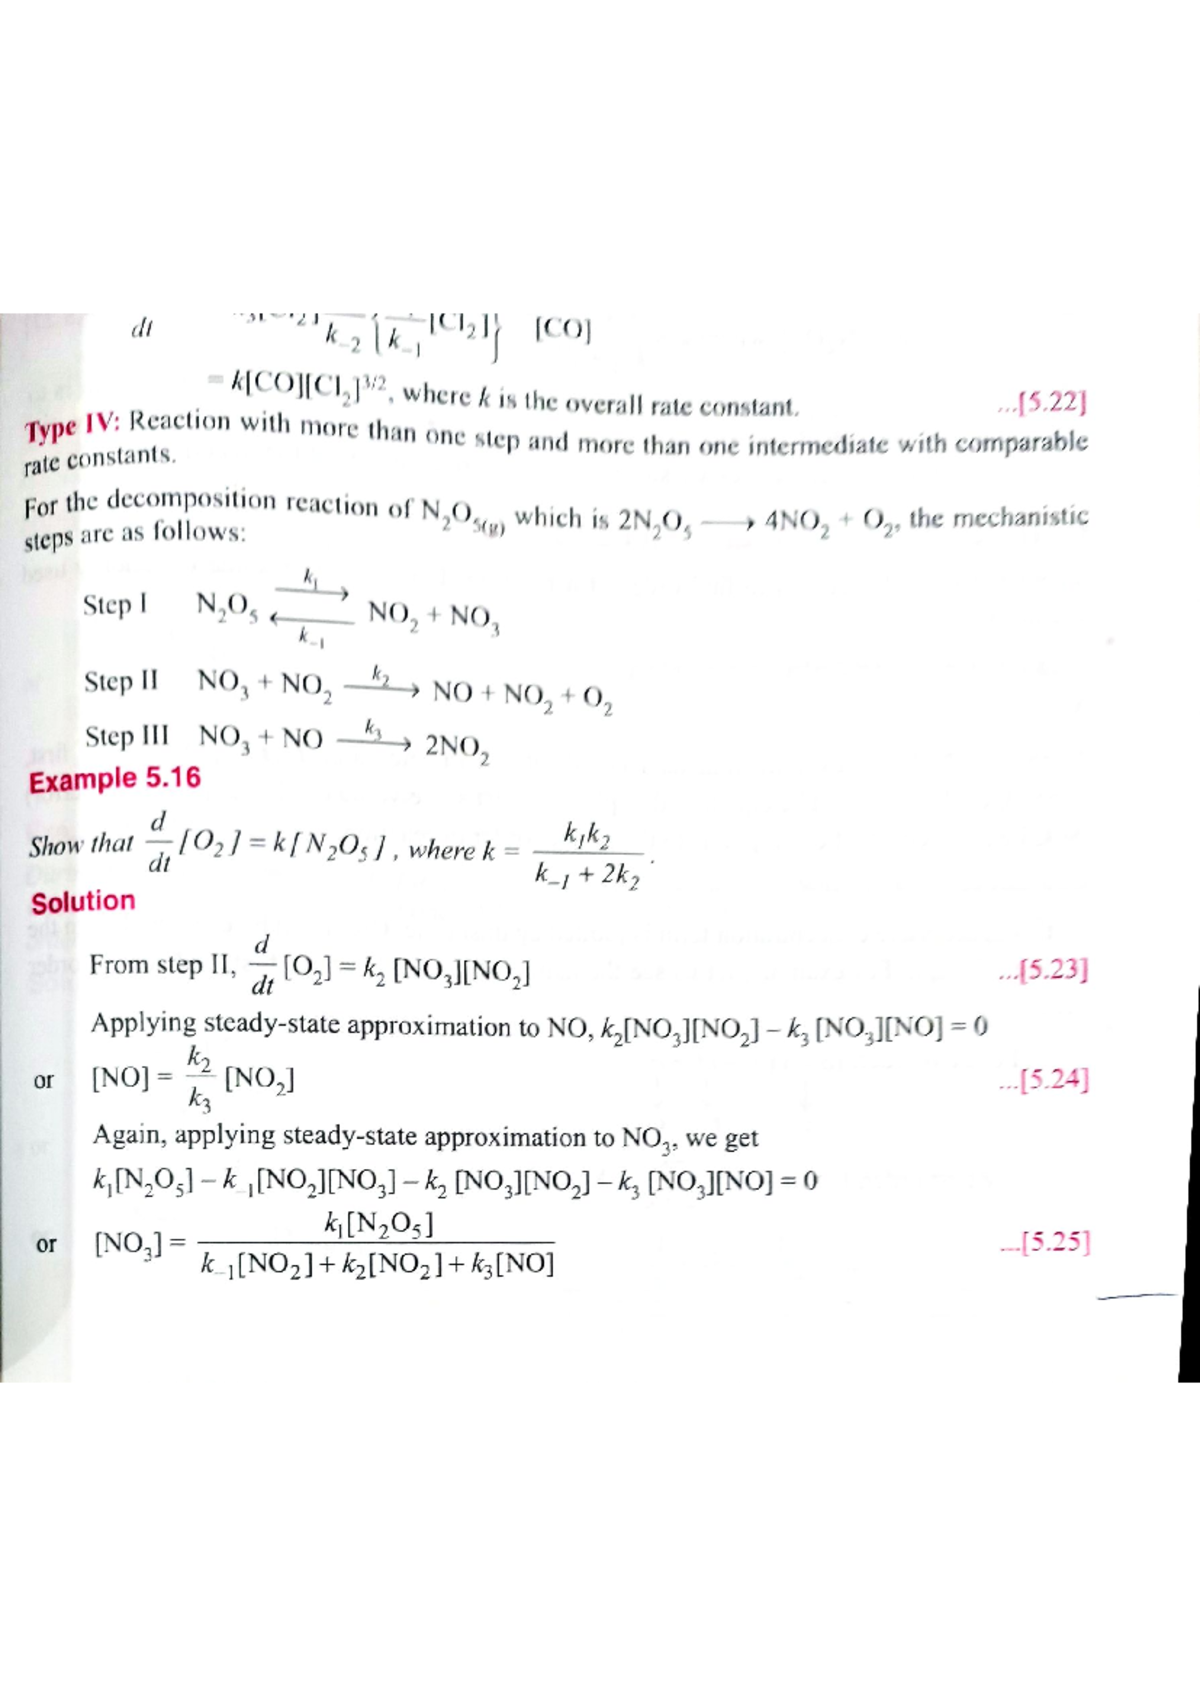 dt k₋₂ { k₋₁ [Cl₂]} [CO]
= k[CO][Cl₂]^3/2, where k is the overall rate constant. ...[5.22]
Type IV: Reaction with more than one step and more than one intermediate with comparable
rate constants.
For the decomposition reaction of N₂O₅(g) which is 2N₂O₅ ⟶ 4NO₂ + O₂, the mechanistic
steps are as follows:
k₁
Step I N₂O₅ ⇄ NO₂ + NO₃
k₋₁
Step II NO₃ + NO₂ —k₂→ NO + NO₂ + O₂
Step III NO₃ + NO —k₃→ 2NO₂
Example 5.16
Show that d/dt [O₂] = k[N₂O₅], where k = k₁k₂ / k₋₁ + 2k₂.
Solution
From step II, d/dt [O₂] = k₂ [NO₃][NO₂] ...[5.23]
Applying steady-state approximation to NO, k₂[NO₃][NO₂] – k₃ [NO₃][NO] = 0
or [NO] = k₂/k₃ [NO₂] ...[5.24]
Again, applying steady-state approximation to NO₃, we get
k₁[N₂O₅] – k₋₁[NO₂][NO₃] – k₂ [NO₃][NO₂] – k₃ [NO₃][NO] = 0
or [NO₃] = k₁[N₂O₅] / k₋₁[NO₂] + k₂[NO₂] + k₃[NO] ...[5.25]